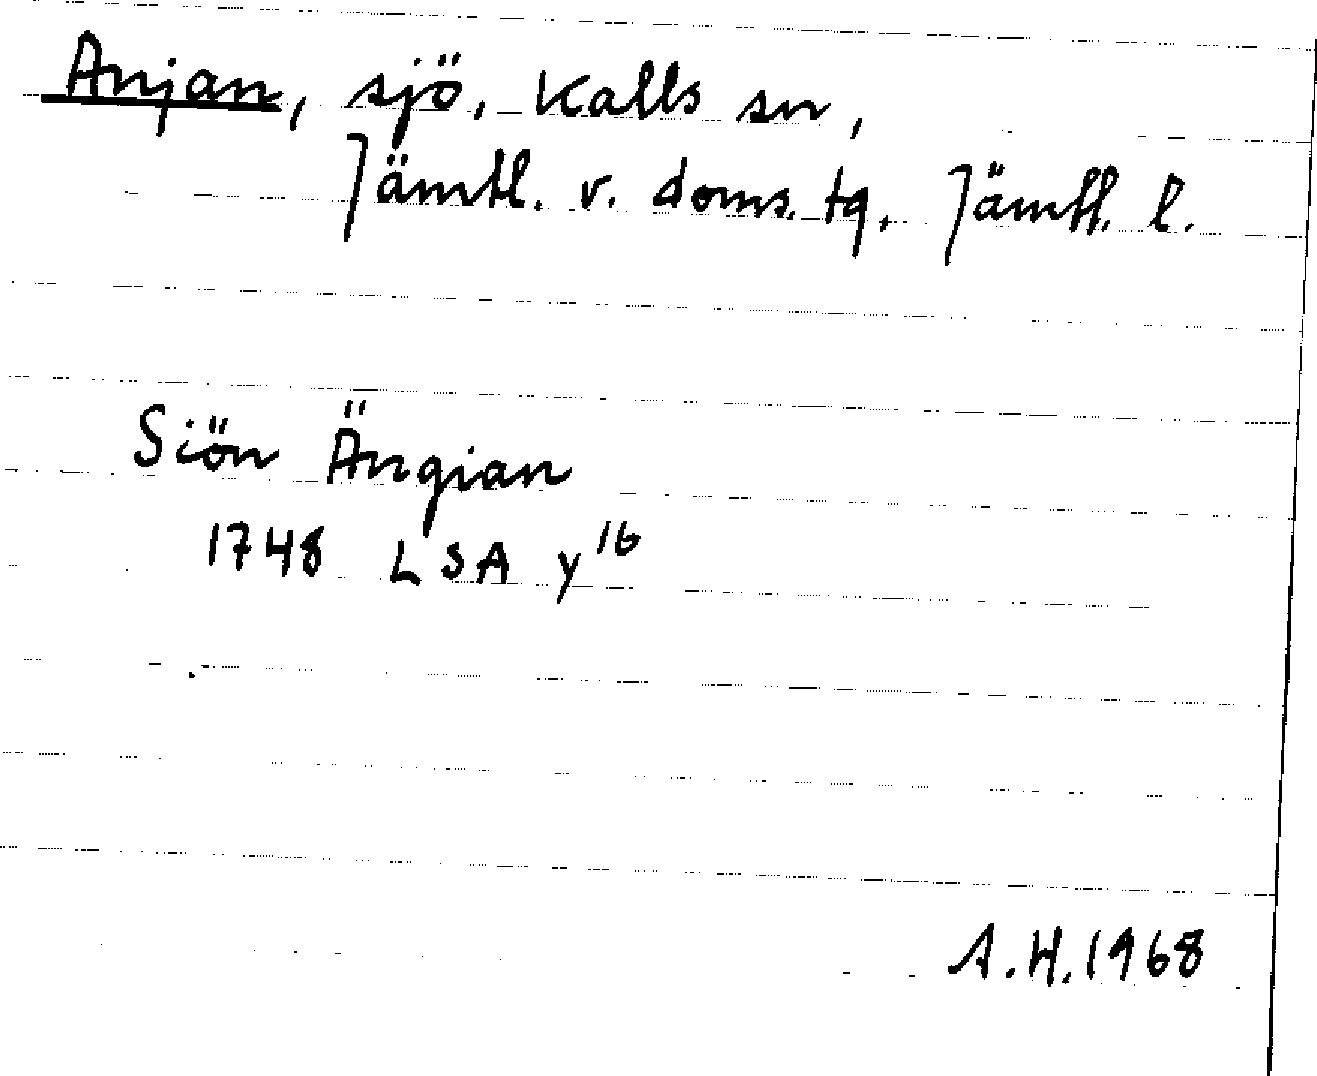 Anjan, sjö, Kalls sn,
Jämtl. v. doms. tg. Jämtl. l.
Siön Ängian
1748 LSA y16
A.H.1968